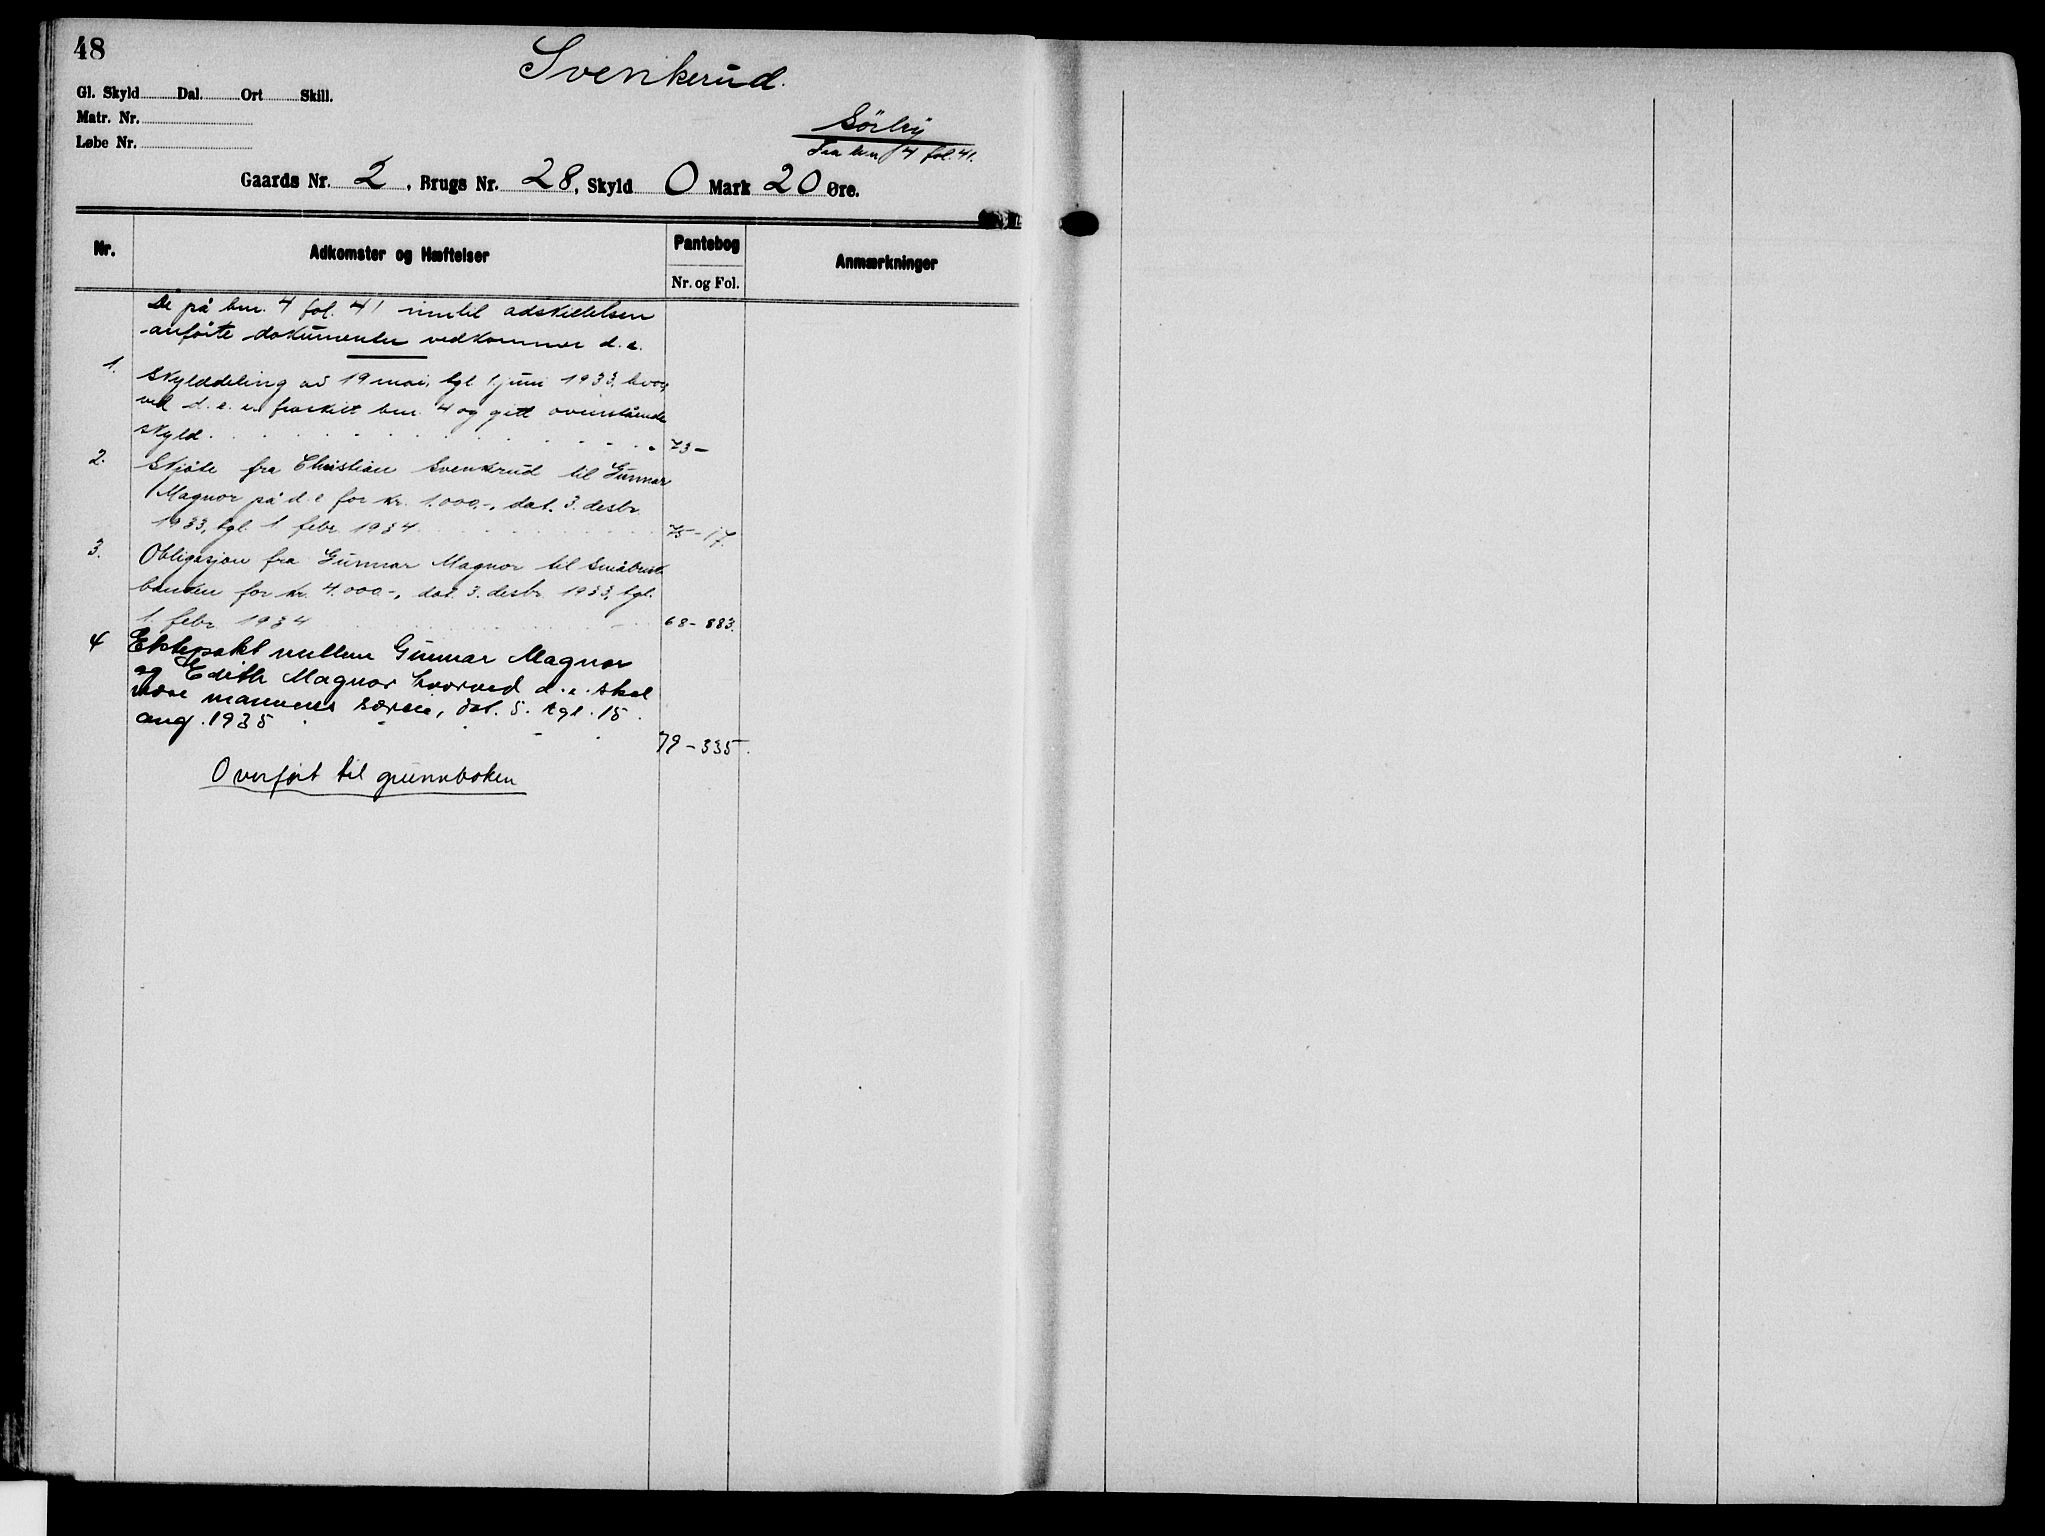 48
Svenkerud.
Gl. Skyld Dal. Ort Skill.
Matr. Nr.
Løbe Nr.
Sörby
Fra bnr 4 fol. 41.
Gaards Nr. 2, Brugs Nr. 28, Skyld 0 Mark 20 Øre.
Nr. Adkomster og Hæftelser Pantebog Anmærkninger
Nr. og Fol.
De på bnr. 4 fol. 41 inntil adskillelsen
anførte dokumenter vedkommer d. e.
1. Skylddeling av 19 mai, tgl. 1. juni 1933, hvor
ved d. e. er fraskilt bnr. 4 og gitt ovenstående
skyld. 73 –
2. Skjøte fra Christian Svenkrud til Gunnar
Magnor på d. e for kr. 1.000.-, dat. 3. desbr.
1933, tgl. 1. febr. 1934. 75 - 17.
3. Obligasjon fra Gunnar Magnor til Småbruk-
banken for kr. 4.000.-, dat. 3. desbr. 1933, tgl.
1. febr. 1934 68 - 883.
4 Ektepakt mellem Gunnar Magnor
og Edith Magnor hvorved d. e. skal
være mannens særeie, dat. 5. tgl. 15.
aug. 1935 79 - 335.
Overført til grunnboken